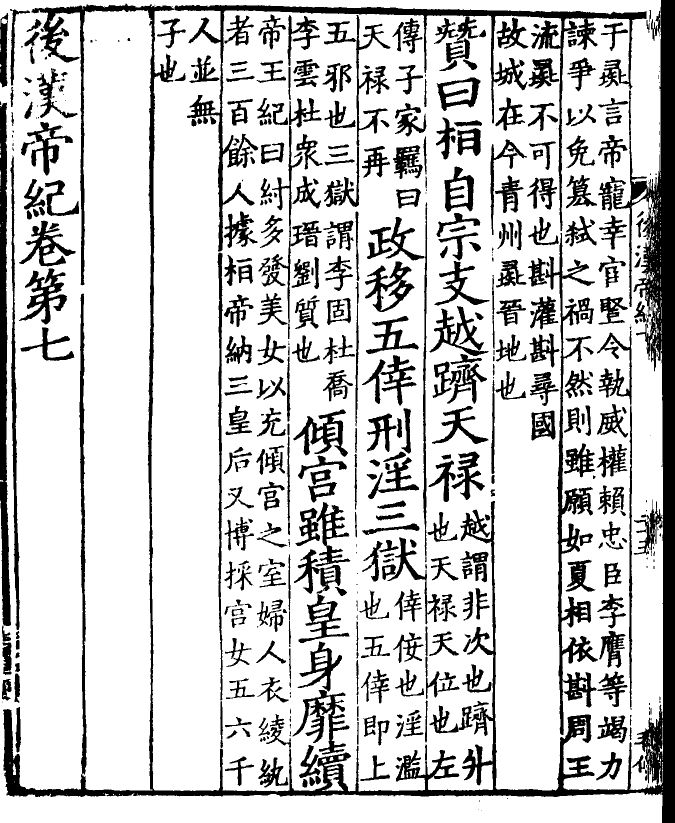 後漢帝紀
于彘言帝寵幸官豎令執威權賴忠臣李膺等竭力
諫爭以免篡弒之禍不然則雖願如夏相依斟周王
流彘不可得也斟灌斟尋國
故城在今青州彘晉地也
贊曰桓自宗支越躋天祿
越謂非次也躋升
也天祿天位也左
傳子家羈曰
天祿不再
政移五倖刑淫三獄
倖佞也淫濫
也五倖即上
五邪也三獄謂李固杜喬
李雲杜衆成瑨劉質也
傾宮雖積皇身靡續
帝王紀曰紂多發美女以充傾宮之室婦人衣綾紈
者三百餘人據桓帝納三皇后又博採宮女五六千
人並無
子也
後漢帝紀卷第七